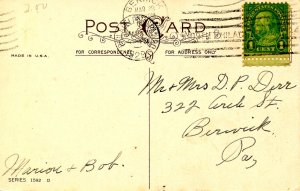 2.00
POST CARD
MADE IN U.S.A.
FOR CORRESPONDENCE
FOR ADDRESS ONLY
1 CENT 1
Mr & Mrs D. P. Derr
322 Arch St.
Berwick
Pa,
Marion & Bob.
SERIES 1592 D